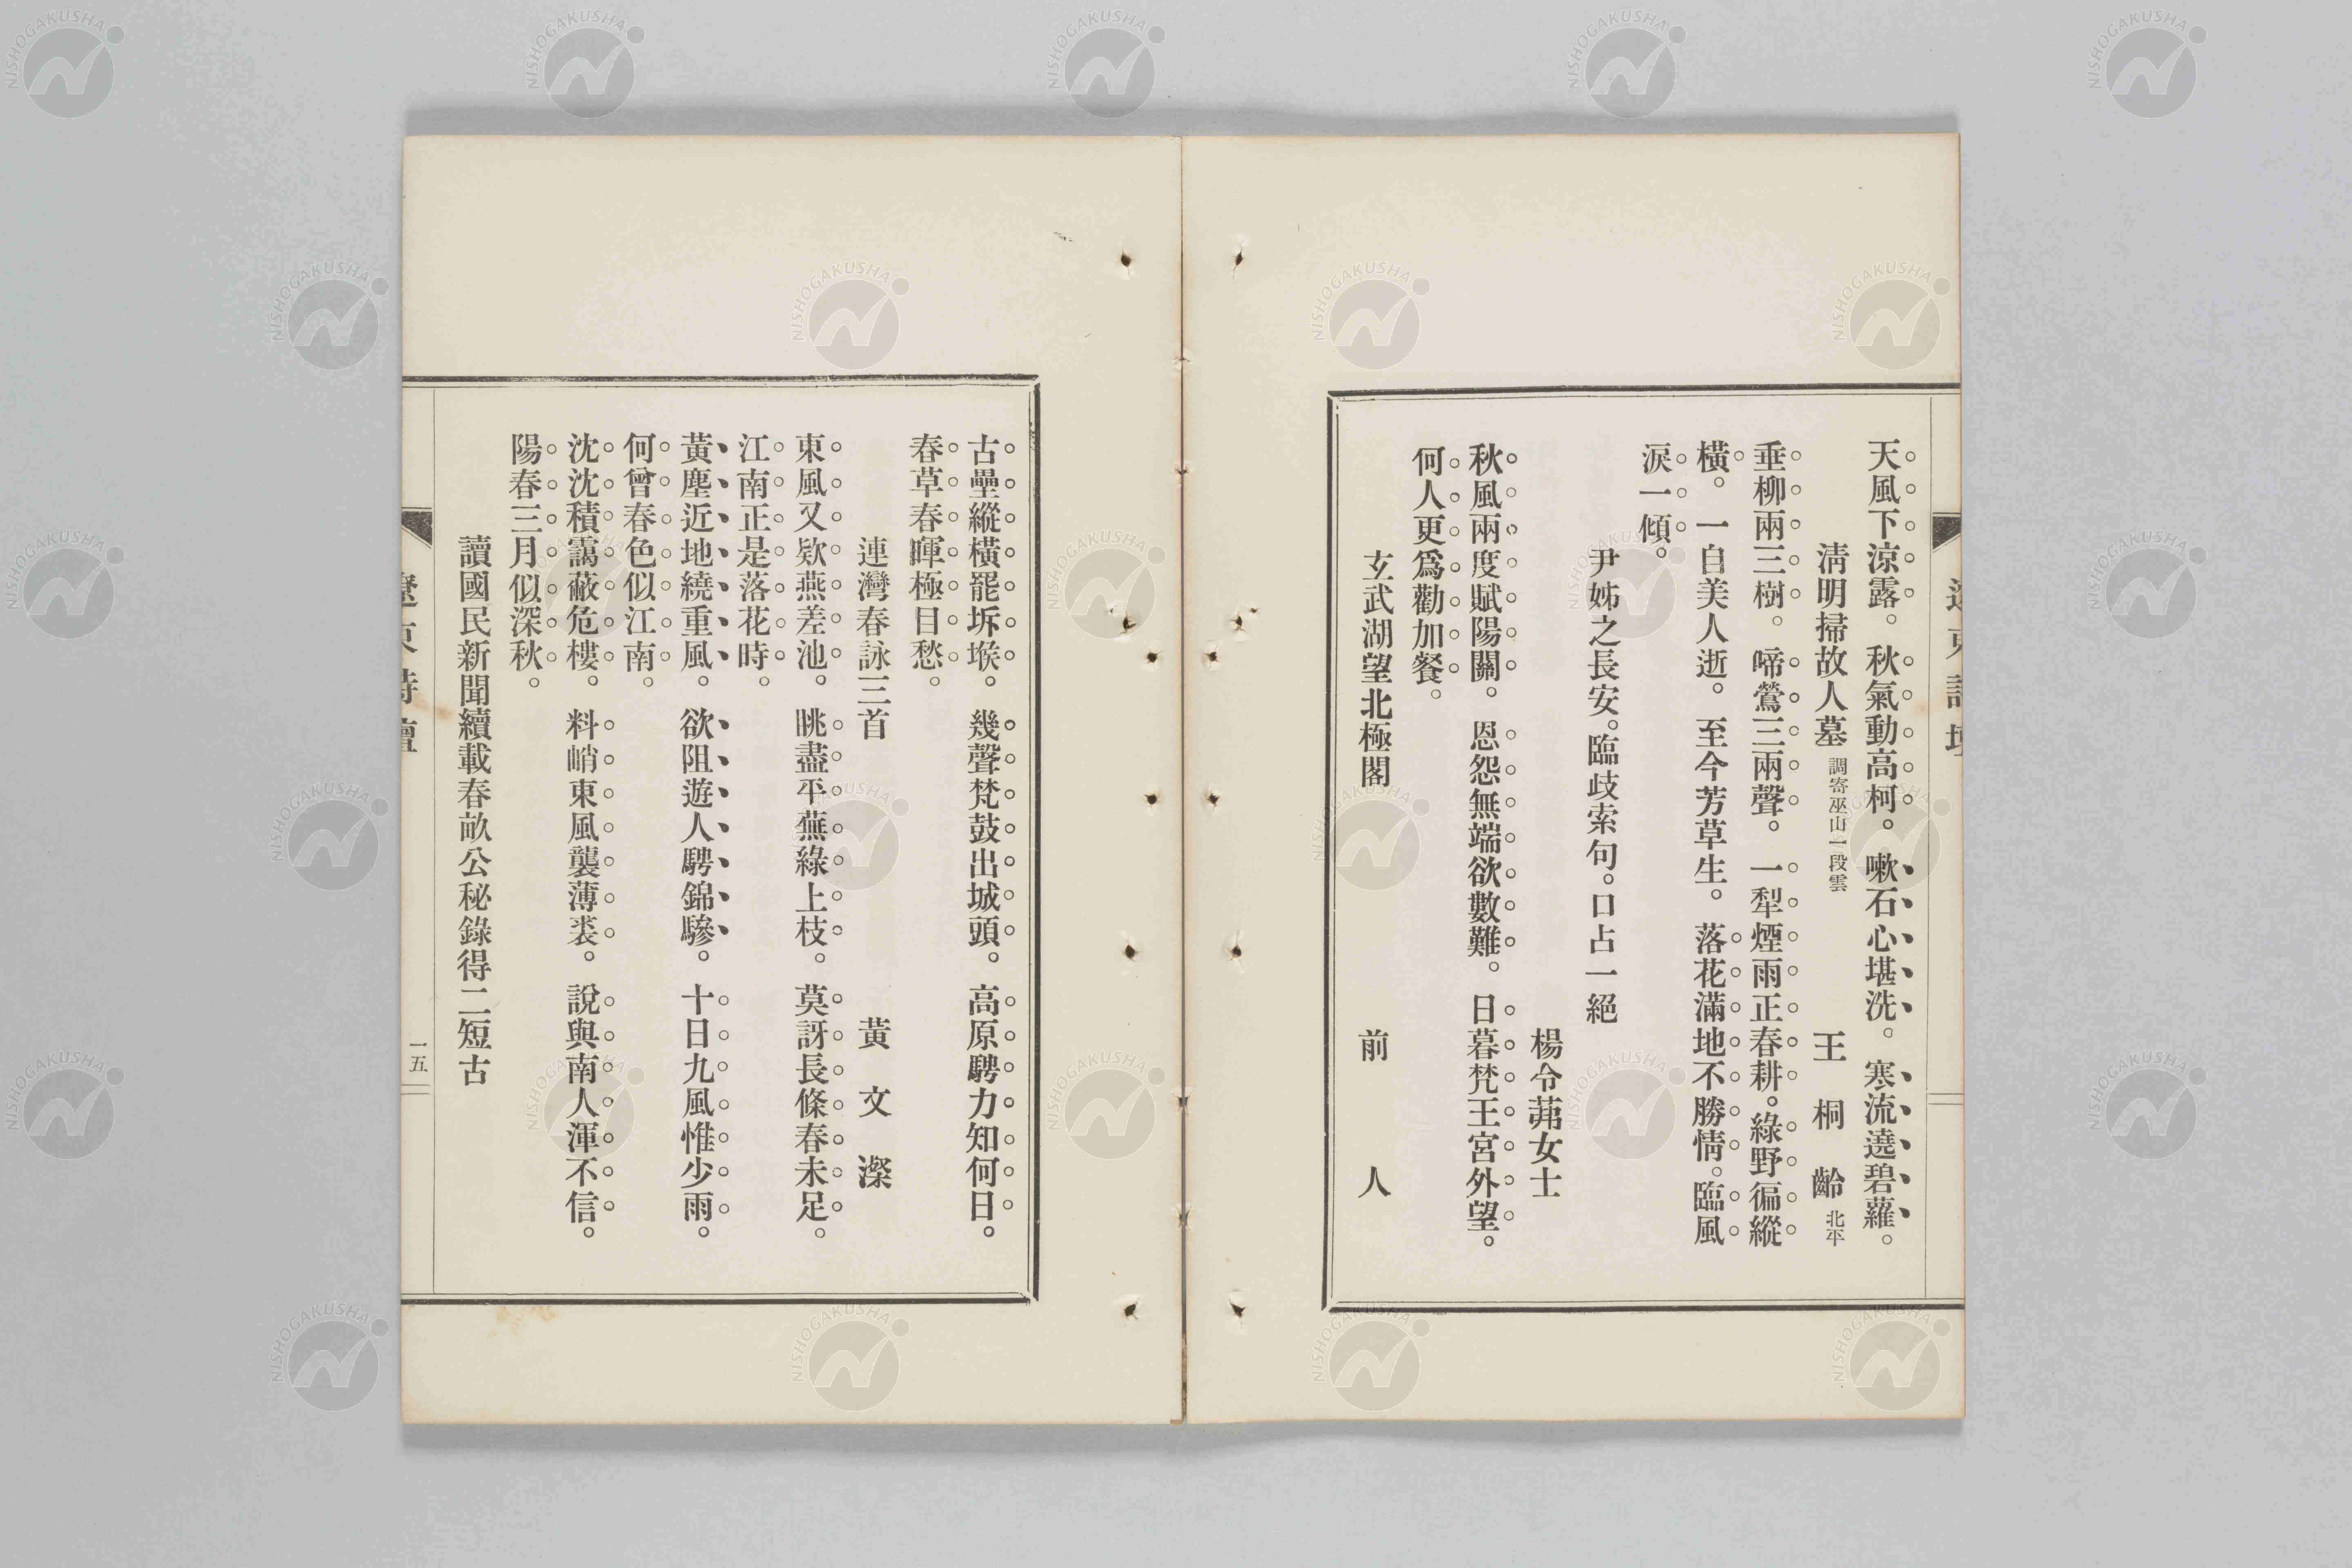 天風下涼露。秋氣動高柯。嗽石心堪洗。寒流遶碧蘿。
清明掃故人墓 調寄巫山一段雲 王桐齡 北平
垂柳兩三樹。啼鶯三兩聲。一犁煙雨正春耕。綠野徧縱
橫。一自美人逝。至今芳草生。落花滿地不勝情。臨風
淚一傾。
尹姊之長安。臨歧索句。口占一絕
楊令茀女士
秋風兩度賦陽關。恩怨無端欲數難。日暮梵王宮外望。
何人更爲勸加餐。
玄武湖望北極閣 前人
古壘縱橫罷坼堠。幾聲梵鼓出城頭。高原騁力知何日。
春草春暉極目愁。
連灣春詠三首 黃文澯
東風又欵燕差池。眺盡平蕪綠上枝。莫訝長條春未足。
江南正是落花時。
黃塵近地繞重風。欲阻遊人騁錦驂。十日九風惟少雨。
何曾春色似江南。
沈沈積靄蔽危樓。料峭東風襲薄裘。說與南人渾不信。
陽春三月似深秋。
讀國民新聞續載春畝公秘錄得二短古
遼東詩壇
一五
NISHOGAKUSHA